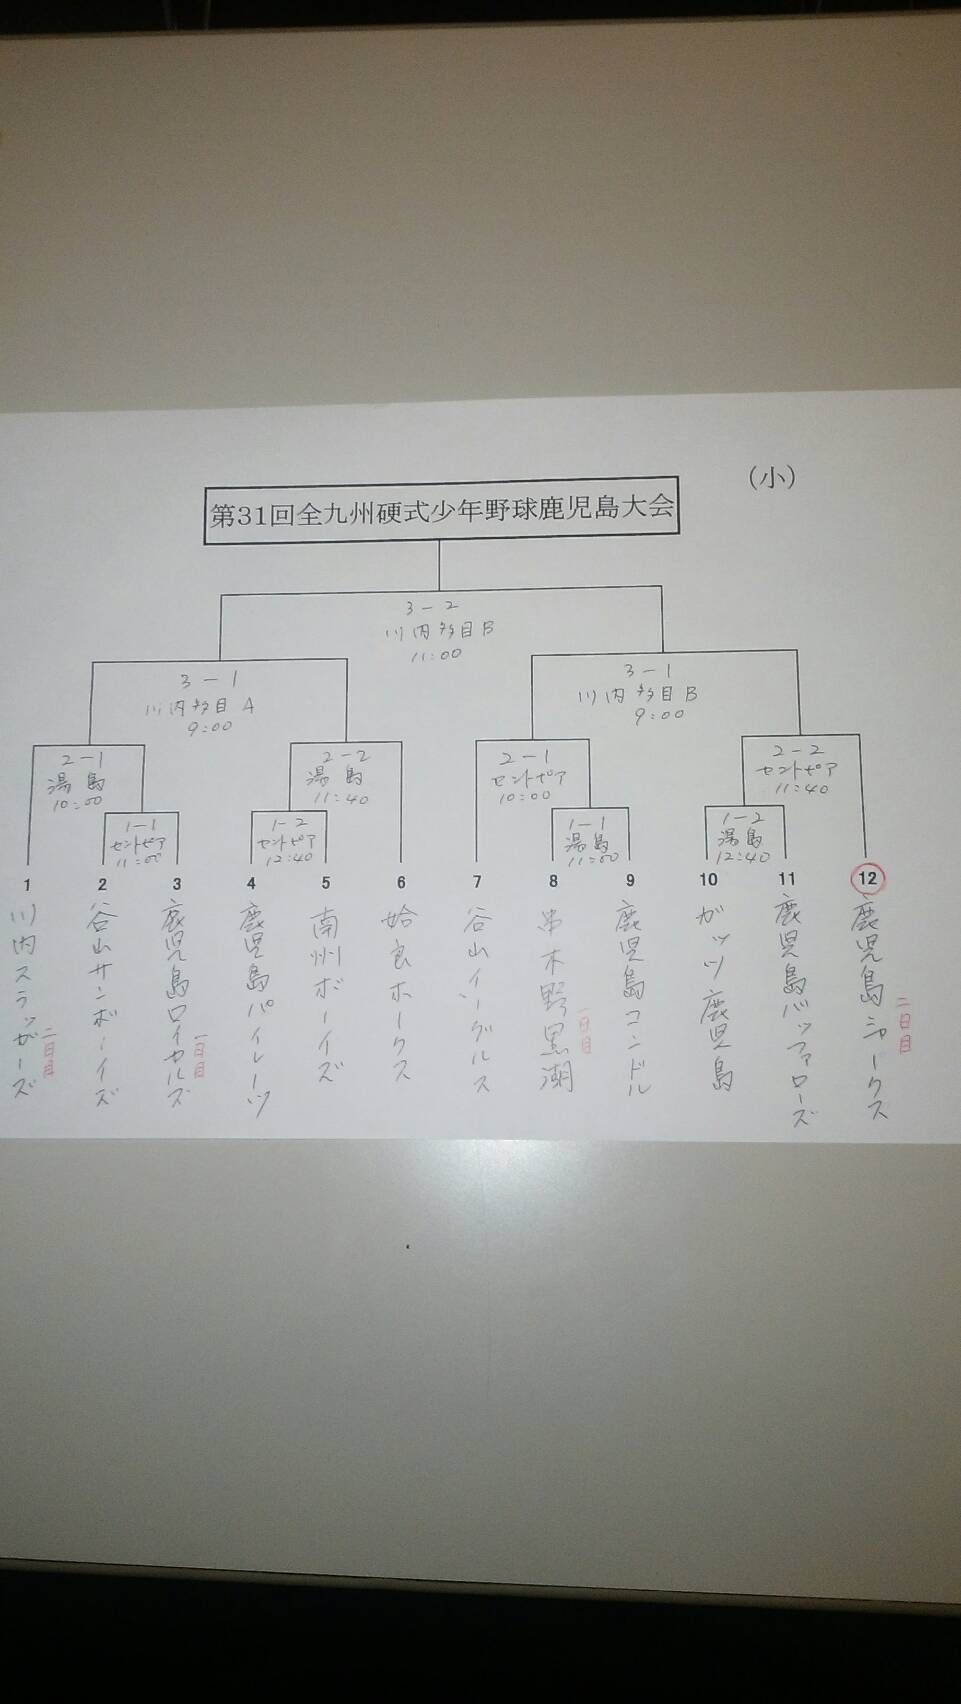 （小）
第31回全九州硬式少年野球鹿児島大会
3-2
川内多目B
11:00
3-1
川内多目A
9:00
3-1
川内多目B
9:00
2-1
湯島
10:00
2-2
湯島
11:40
2-1
セントピア
10:00
2-2
セントピア
11:40
1-1
セントピア
11:00
1-2
セントピア
12:40
1-1
湯島
11:00
1-2
湯島
12:40
1
2
3
4
5
6
7
8
9
10
11
12
川内スラッガーズ
二日目
谷山サンボーイズ
鹿児島ロイヤルズ
一日目
鹿児島パイレーツ
南州ボーイズ
姶良ホークス
谷山イーグルス
串木野黒潮
一日目
鹿児島コンドル
ガッツ鹿児島
鹿児島バッファローズ
鹿児島シャークス
二日目